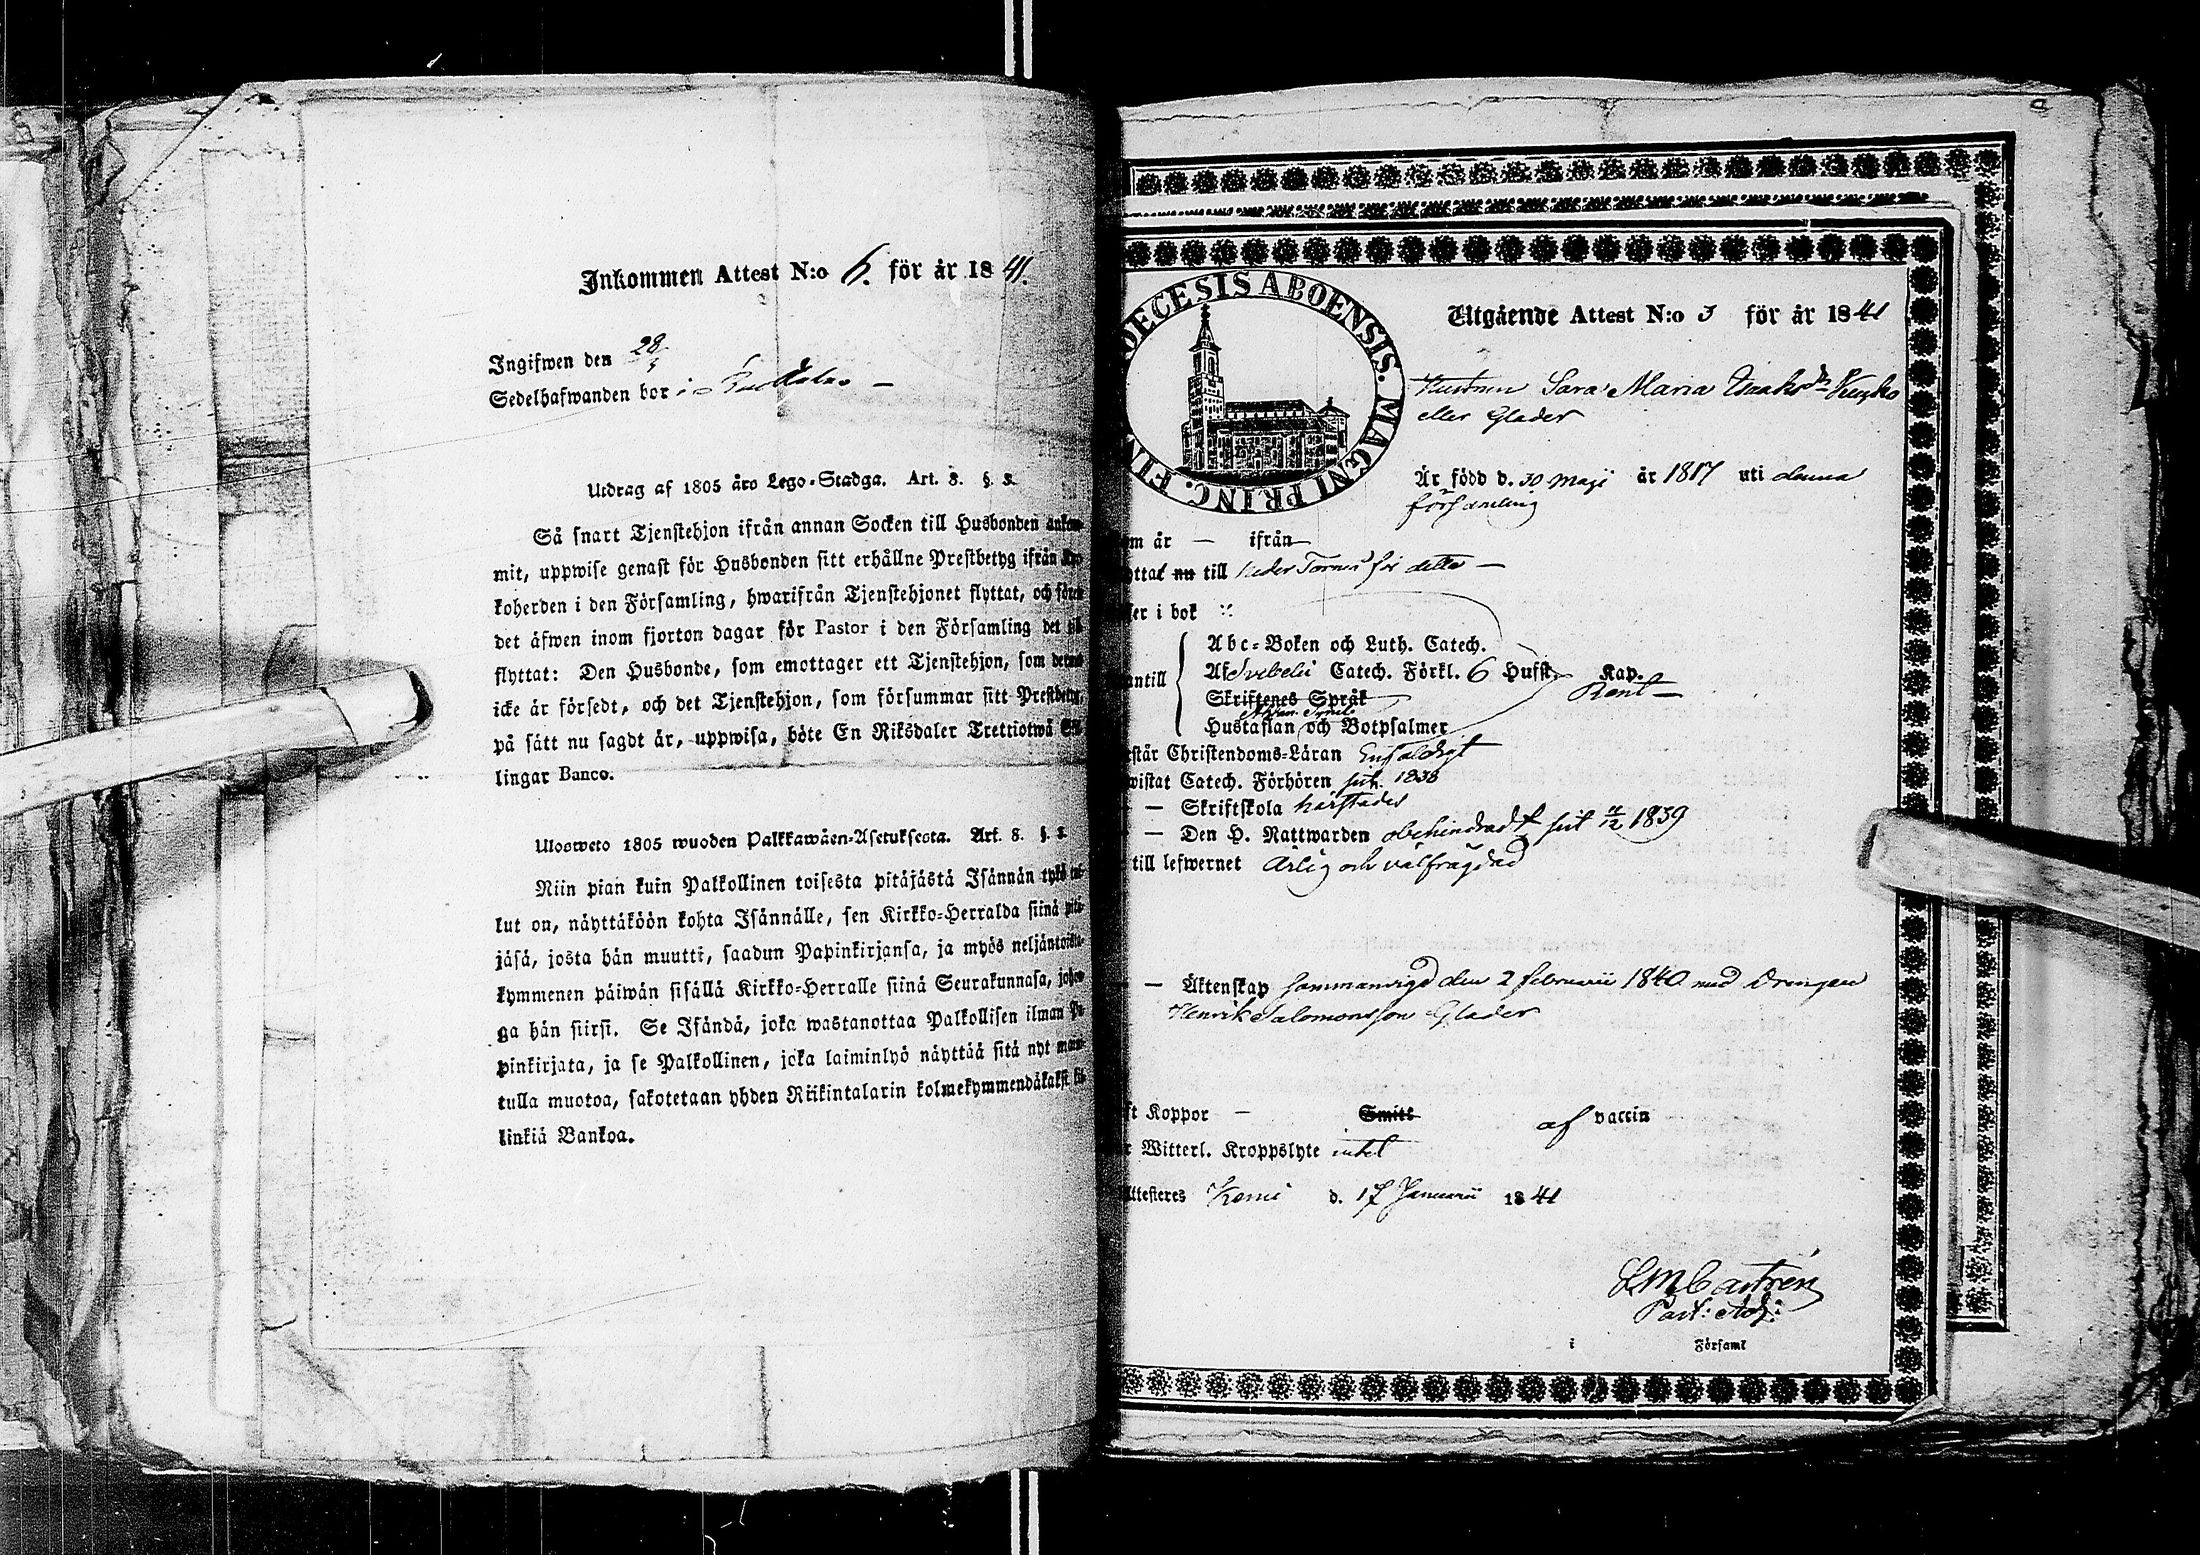 Inkommen Attest N:o 6. för år 1841.
Ingifwen den 28/3
Sedelhafwanden bor i
Utdrag af 1805 åro Lego-Stadga. Art. 8. §. 8.
Så snart Tjenstehjon ifrån annan Socken till Husbonden ankom-
mit, uppwise genast för Husbonden sitt erhållne Prestbetyg ifrån Kyr-
koherden i den Församling, hwarifrån Tjenstehjonet flyttat, och före
det äfwen inom fjorton dagar för Pastor i den Församling det till
flyttat: Den Husbonde, som emottager ett Tjenstehjon, som dermed
icke är försedt, och det Tjenstehjon, som försummar sitt Prestbetyg,
på sätt nu sagdt är, uppwisa, böte En Riksdaler Trettiotwå Skil-
lingar Banco.
Ulosweto 1805 wuoden Palkkawäen-Asetuksesta. Art. 8. §. 8.
Niin pian kuin Palkollinen toisesta pitäjästä Isännän tykö tul-
lut on, näyttäköön kohta Isännälle, sen Kirkko-Herralda siinä pitä-
jäsä, josta hän muutti, saadun Papinkirjansa, ja myös neljäntoista-
kymmenen päiwän sisällä Kirkko-Herralle siinä Seurakunnasa, johon-
ga hän siirsi. Se Isändä, joka wastanottaa Palkollisen ilman Pa-
pinkirjata, ja se Palkollinen, joka laiminlyö näyttää sitä nyt mai-
tulla muotoa, sakotetaan yhden Riikintalarin kolmekymmendäkaksi kil-
linkiä Bankoa.
DIOECESIS ABOENSIS. MAGNI PRINC. FIN
Utgående Attest N:o 3 för år 1841
Hustrun Sara Maria Isaksdr
eller Glader
Är född d. 30 Maji år 1817 uti denna
församling
om år — ifrån
yttat nu till Neder Torneå för detta —
ser i bok
Abc-Boken och Luth. Catech.
Af Svebelii Catech. Förkl. 6 Hufst. Kap.
antill Skriftenes Språk Rent —
Hustaflan och Botpsalmer
rstår Christendoms-Läran Enfaldigt
wistat Catech. Förhören sist. 1838
— — Skriftskola härstädes
— — Den H. Nattwarden obehindradt sist 11/12 1839
till lefwernet Ärlig och välfrägdad
— — Äktenskap sammanvigd den 2 februarii 1840 med Drengen
Henrik Salomonsson Glader
ft Koppor — Smitt af vaccin
r Witterl. Kroppslyte intet
Attesteres Kemi d. 17 Januarii 1841
L M Castrén
Past: Adj:
i Församl